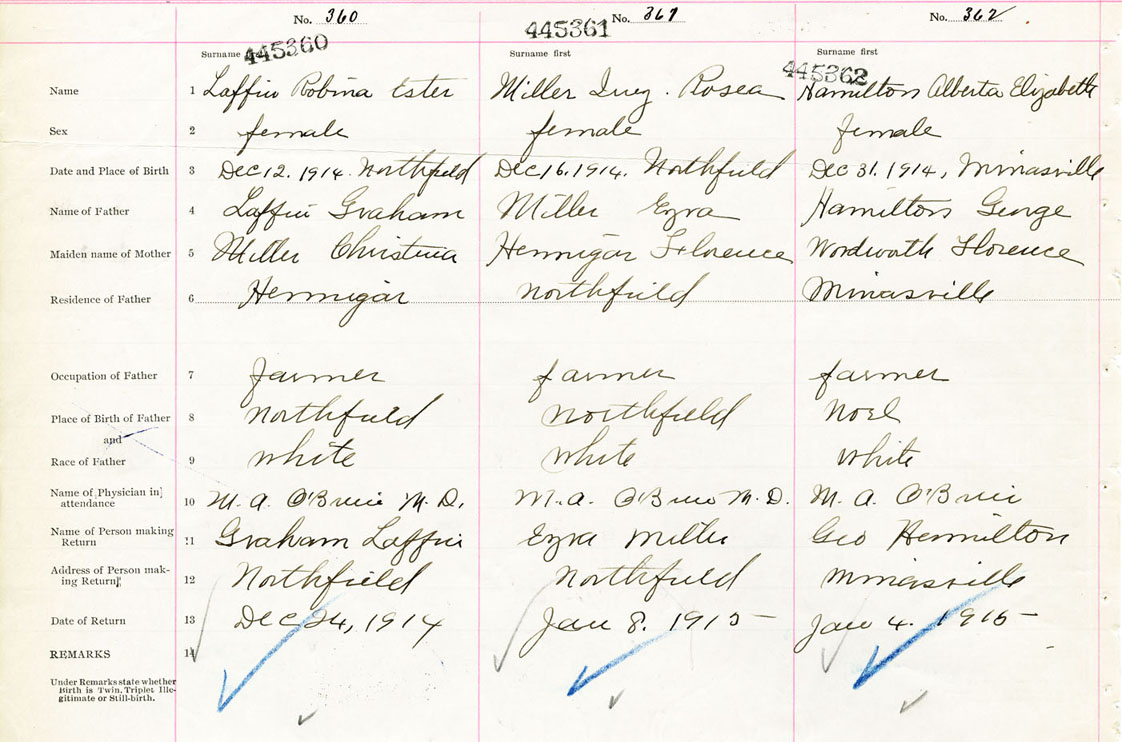 No. 360 No. 361 No. 362
445360 445361 445362
Surname first Surname first Surname first
Name 1 Laffin Robina Ester Miller Inez. Rosea Hamilton Alberta Elizabeth
Sex 2 female female female
Date and Place of Birth 3 Dec 12. 1914. Northfield Dec 16. 1914. Northfield Dec 31. 1914, Minasville
Name of Father 4 Laffin Graham Miller Ezra Hamilton George
Maiden name of Mother 5 Miller Christina Hennigar Florence Wordworth Florence
Residence of Father 6 Hennigar Northfield Minasville
Occupation of Father 7 farmer farmer farmer
Place of Birth of Father 8 Northfield Northfield Noel
and
Race of Father 9 white white white
Name of Physician in
attendance 10 M. A. O'Brien M. D. M. A. O'Brien M. D. M. A. O'Brien
Name of Person making
Return 11 Graham Laffin Ezra Miller Geo Hamilton
Address of Person mak-
ing Return 12 Northfield Northfield Minasville
Date of Return 13 Dec 24, 1914 Jan 8. 1915 Jan 4. 1915
REMARKS 14
Under Remarks state whether
Birth is Twin, Triplet Ille-
gitimate or Still-birth.